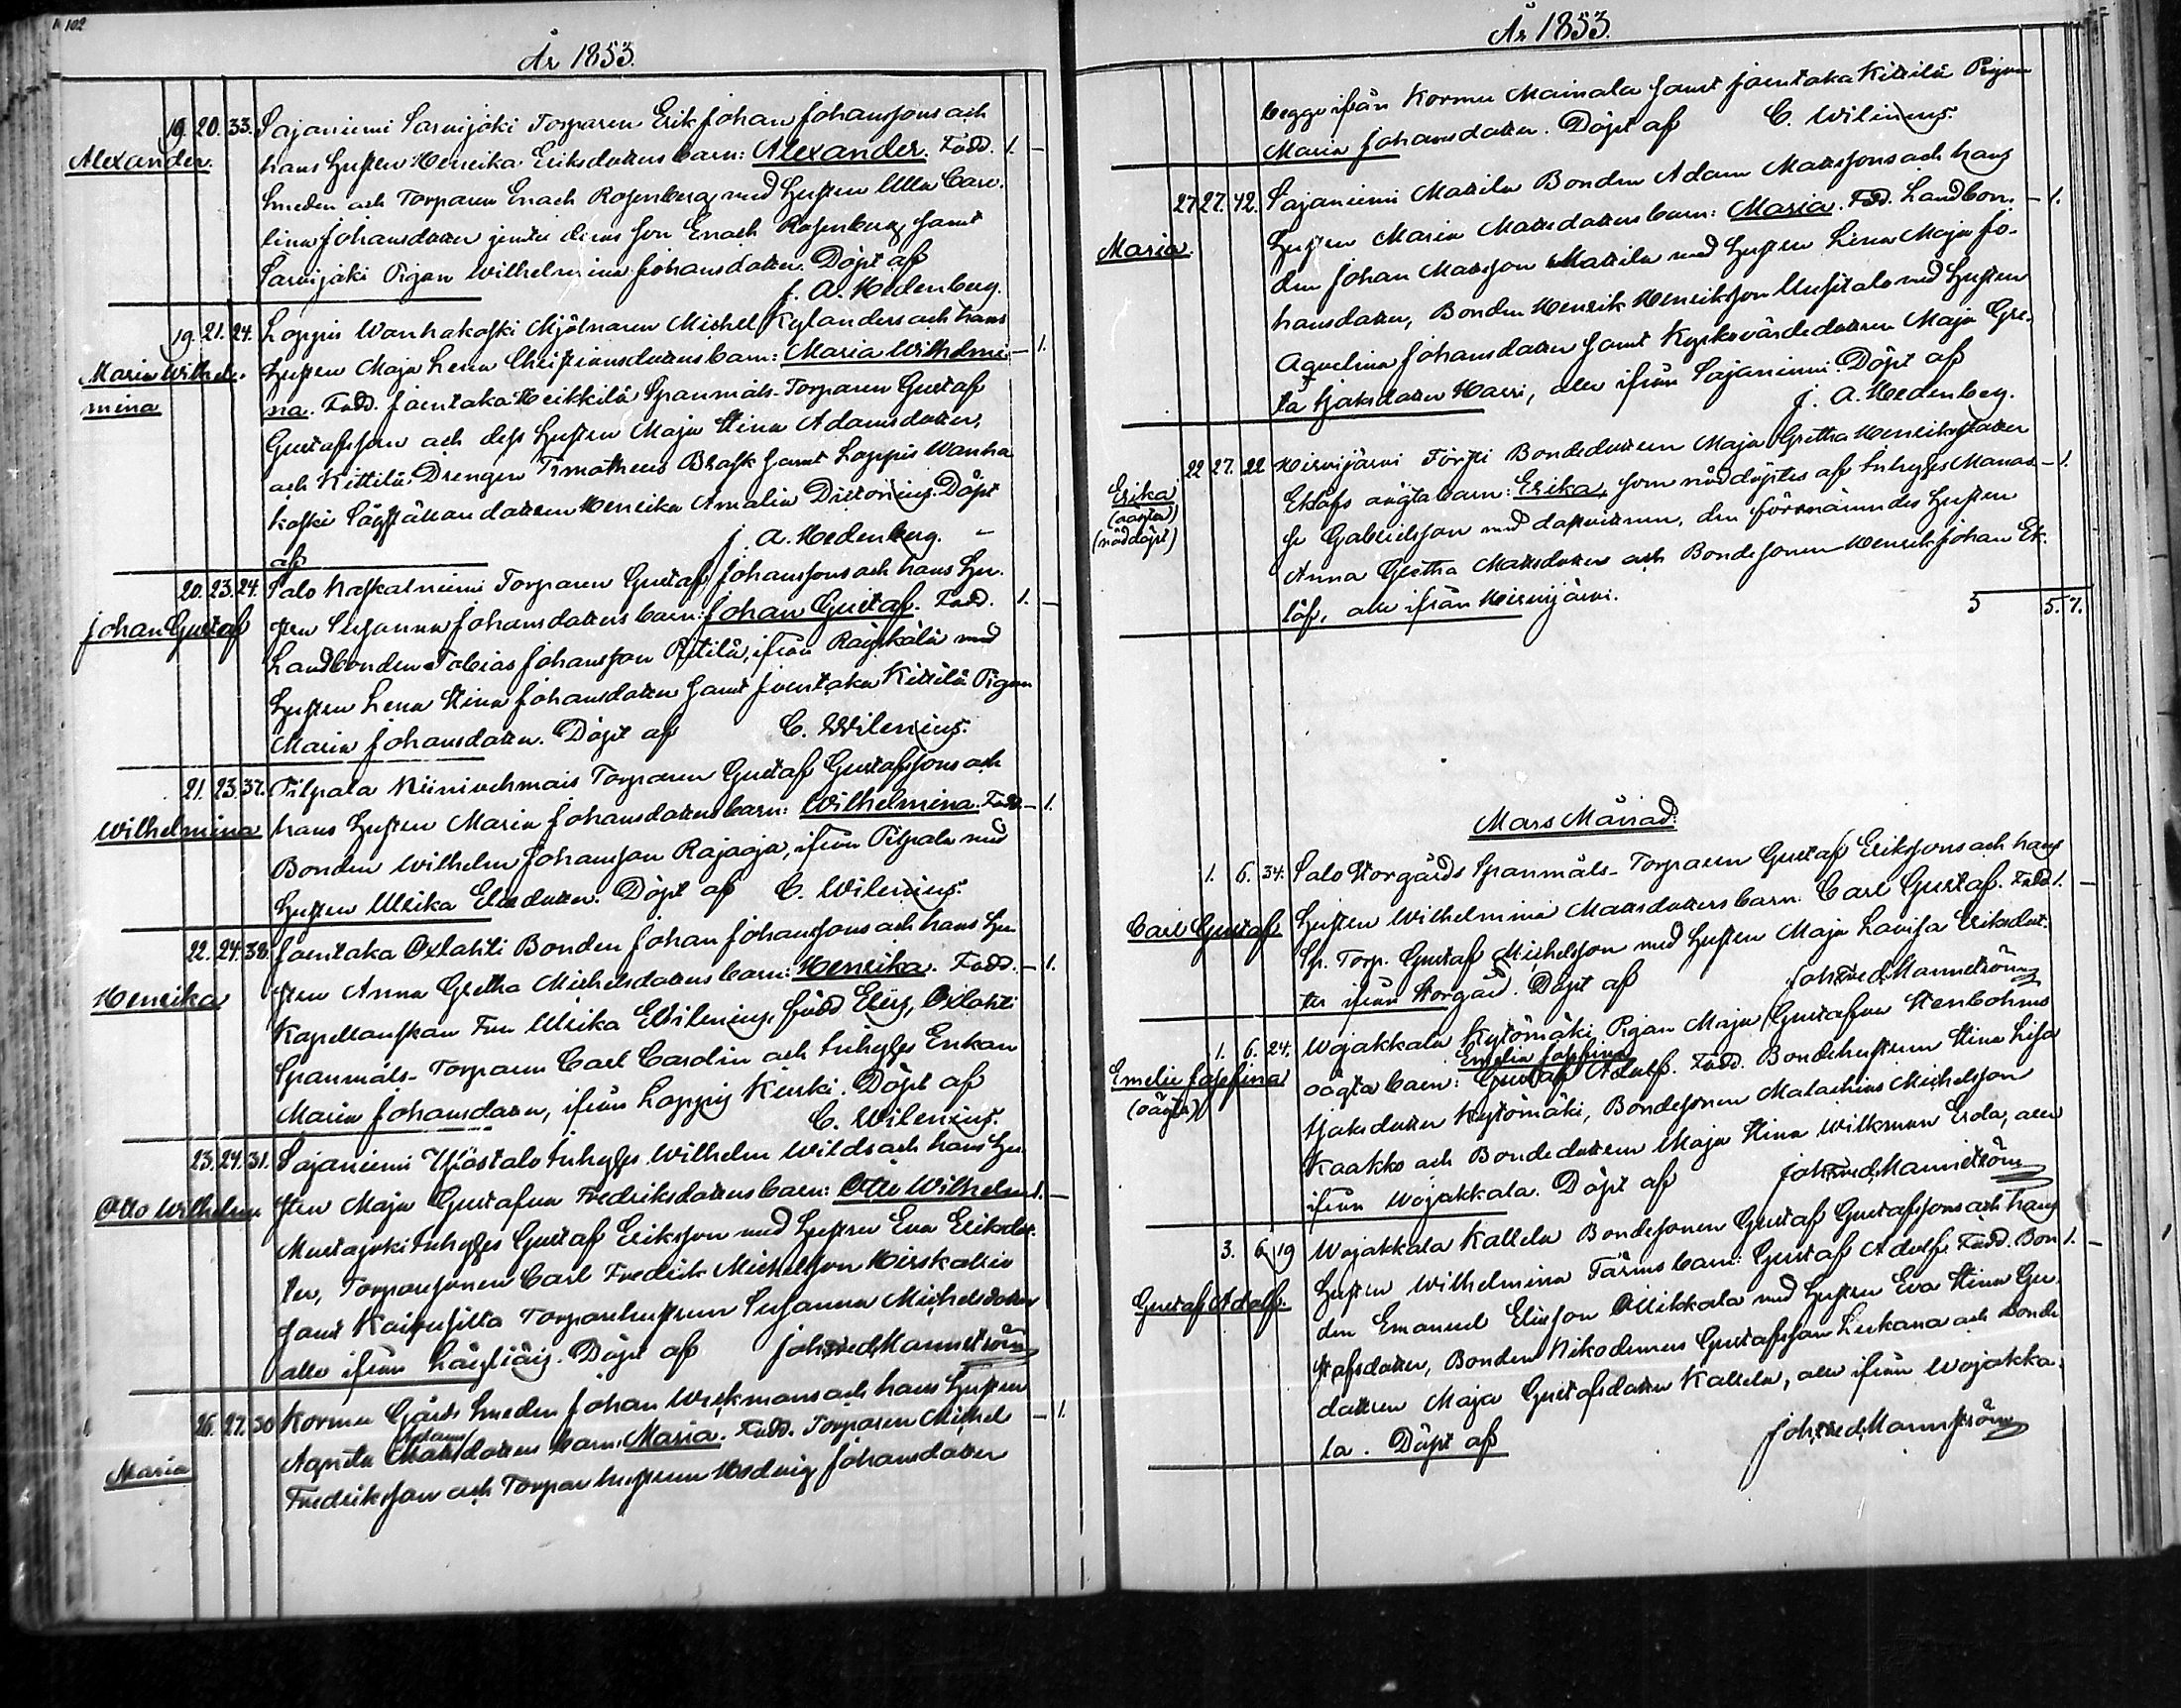 102
År 1853.
19. 20. 33. Sajaniemi Sarvijoki Torparen Erik Johan Johanssons och
Alexander. hans hustru Henrika Eriksdotters barn: Alexander. Fadd. 1. —
Smeden och Torparen Enoch Rosenberg med hustru Ulla Caro-
lina Johansdotter jemte deras son Enoch Rosenberg samt
Sarvijoki Pigan Wilhelmina Johansdotter. Döpt af
J. A. Hedenberg.
19. 21. 24. Loppis Wanhakoski Mjölnaren Michel Kylanders och hans
Maria Wilhel- hustru Maja Lena Christiansdotters barn: Maria Wilhelmi- — 1.
mina na. Fadd. Joentaka Heikkilä Spanmåls-Torparen Gustaf
Gustafsson och dess hustru Maja Stina Adamsdotter,
och Kittilä Drengen Timotheus Brask samt Loppis Wanha
koski dottren Henrika Amalia Döpt
af J. A. Hedenberg. —
20. 23. 24. Salo Torparen Gustaf Johanssons och hans hu-
Johan Gustaf stru Susanna Johansdotters barn: Johan Gustaf. Fadd. 1. —
Landbonden Tobias Johansson ifrån Räyskälä med
hustru Lena Stina Johansdotter samt Joentaka Kittilä Pigan
Maria Johansdotter. Döpt af C. Wilenius.
21. 23. 37. Pilpala Torparen Gustaf Gustafssons och
Wilhelmina hans hustru Maria Johansdotters barn: Wilhelmina. Fadd. — 1.
Bonden Wilhelm Johansson Rajaoja, ifrån Pilpala med
hustru Ulrika Eliedotter. Döpt af C. Wilenius.
22. 24. 38. Joentaka Oxlahti Bonden Johan Johanssons och hans hu-
Henrika stru Anna Gretha Michelsdotters barn: Henrika. Fadd. — 1.
Kapellanskan Fru Ulrika Wilenius, född Oxlahti
Spanmåls-Torparen Carl Carolin och Inhyses Enkan
Maria Johansdotter, ifrån Loppis Kinki. Döpt af
C. Wilenius.
23. 24. 31. Sajaniemi Inhyses Wilhelm Wilds och hans hu-
Otto Wilhelm stru Maja Gustafva Fredriksdotters barn: Otto Wilhelm 1. —
Mustajoki Inhyses Gustaf Eriksson med hustru Eva Eriksdot-
ter, Torparsonen Carl Fredrik Michelsson Hirskallio
samt Kaitusilta Torparehustrun Susanna Michelsdotter
alle ifrån Läyliäis. Döpt af Joh. Fred. Mannström
26. 27. 30 Kormu Gårds Smeden Johan Wickmans och hans hustru
Adams
Maria Agneta Matsdotters barn: Maria. Fadd. Torparen Michel — 1.
Fredriksson och Torparehustrun Hedvig Johansdotter
År 1853.
begge ifrån Kormu Mainala samt Joentaka Kittilä Pigan
Maria Johansdotter. Döpt af C. Wilenius.
27. 27. 42. Sajaniemi Mattila Bonden Adam Matssons och hans
Maria. hustru Maria Matsdotters barn: Maria. Fad. Landbon- — 1.
den Johan Matsson Mattila med hustru Lena Maja Jo-
hansdotter, Bonden Henrik Henriksson Uusitalo med hustru
Aqvelina Johansdotter samt Kyrkovärdedottren Maja Gre-
ta Isaksdotter Harri, alle ifrån Sajaniemi. Döpt af
J. A. Hedenberg.
22 27. 22 Hirvijärvi Bondedottren Maja Gretha Henriksdotter
Erika Eklöfs oägta barn: Erika, som nöddöptes af Inhyses Manas- — 1.
(oägta) se Gabrielsson med dopvittnen, den förrnämndes hustru
(nöddöpt) Anna Gretha Matsdotter och Bondesonen Henrik Johan Ek-
löf, alle ifrån Hirvijärvi. 5 5. 7.
Mars Månad.
1. 6. 34. Salo Storgårds Spanmåls-Torparen Gustaf Erikssons och hans
Carl Gustaf hustru Wilhelmina Matsdotters barn. Carl Gustaf. Fadd. 1. —
Sp. Torp. Gustaf Michelsson med hustru Maja Lovisa Eriksdot-
ter ifrån Storgård. Döpt af Joh. Fred. Mannström
1. 6. 24. Wojakkala Kytömäki Pigan Maja Gustafva Stenbohms
Emelia Josefina
Emelie Josefina oägta barn: Gustaf Adolf. Fadd. Bondehustrun Stina Lisa
(oägta) Isaksdotter Kytömäki, Bondesonen Malachias Michelsson
Kaakko och Bondedottren Maja Stina Wilkman Erola, alle
ifrån Wojakkala. Döpt af Joh. Fred. Mannström
3. 6. 19 Wojakkala Kallela Bondesonen Gustaf Gustafssons och hans
Gustaf Adolf. hustru Wilhelmina Färms barn: Gustaf Adolf. Fadd. Bon 1. —
den Emanuel Eliesson Ollikkala med hustru Eva Stina Gu-
stafsdotter, Bonden Nikodemus Gustafsson Leikana och Bonde
dottren Maja Gustafsdotter Kallela, alle ifrån Wojakka-
la. Döpt af Joh. Fred. Mannström